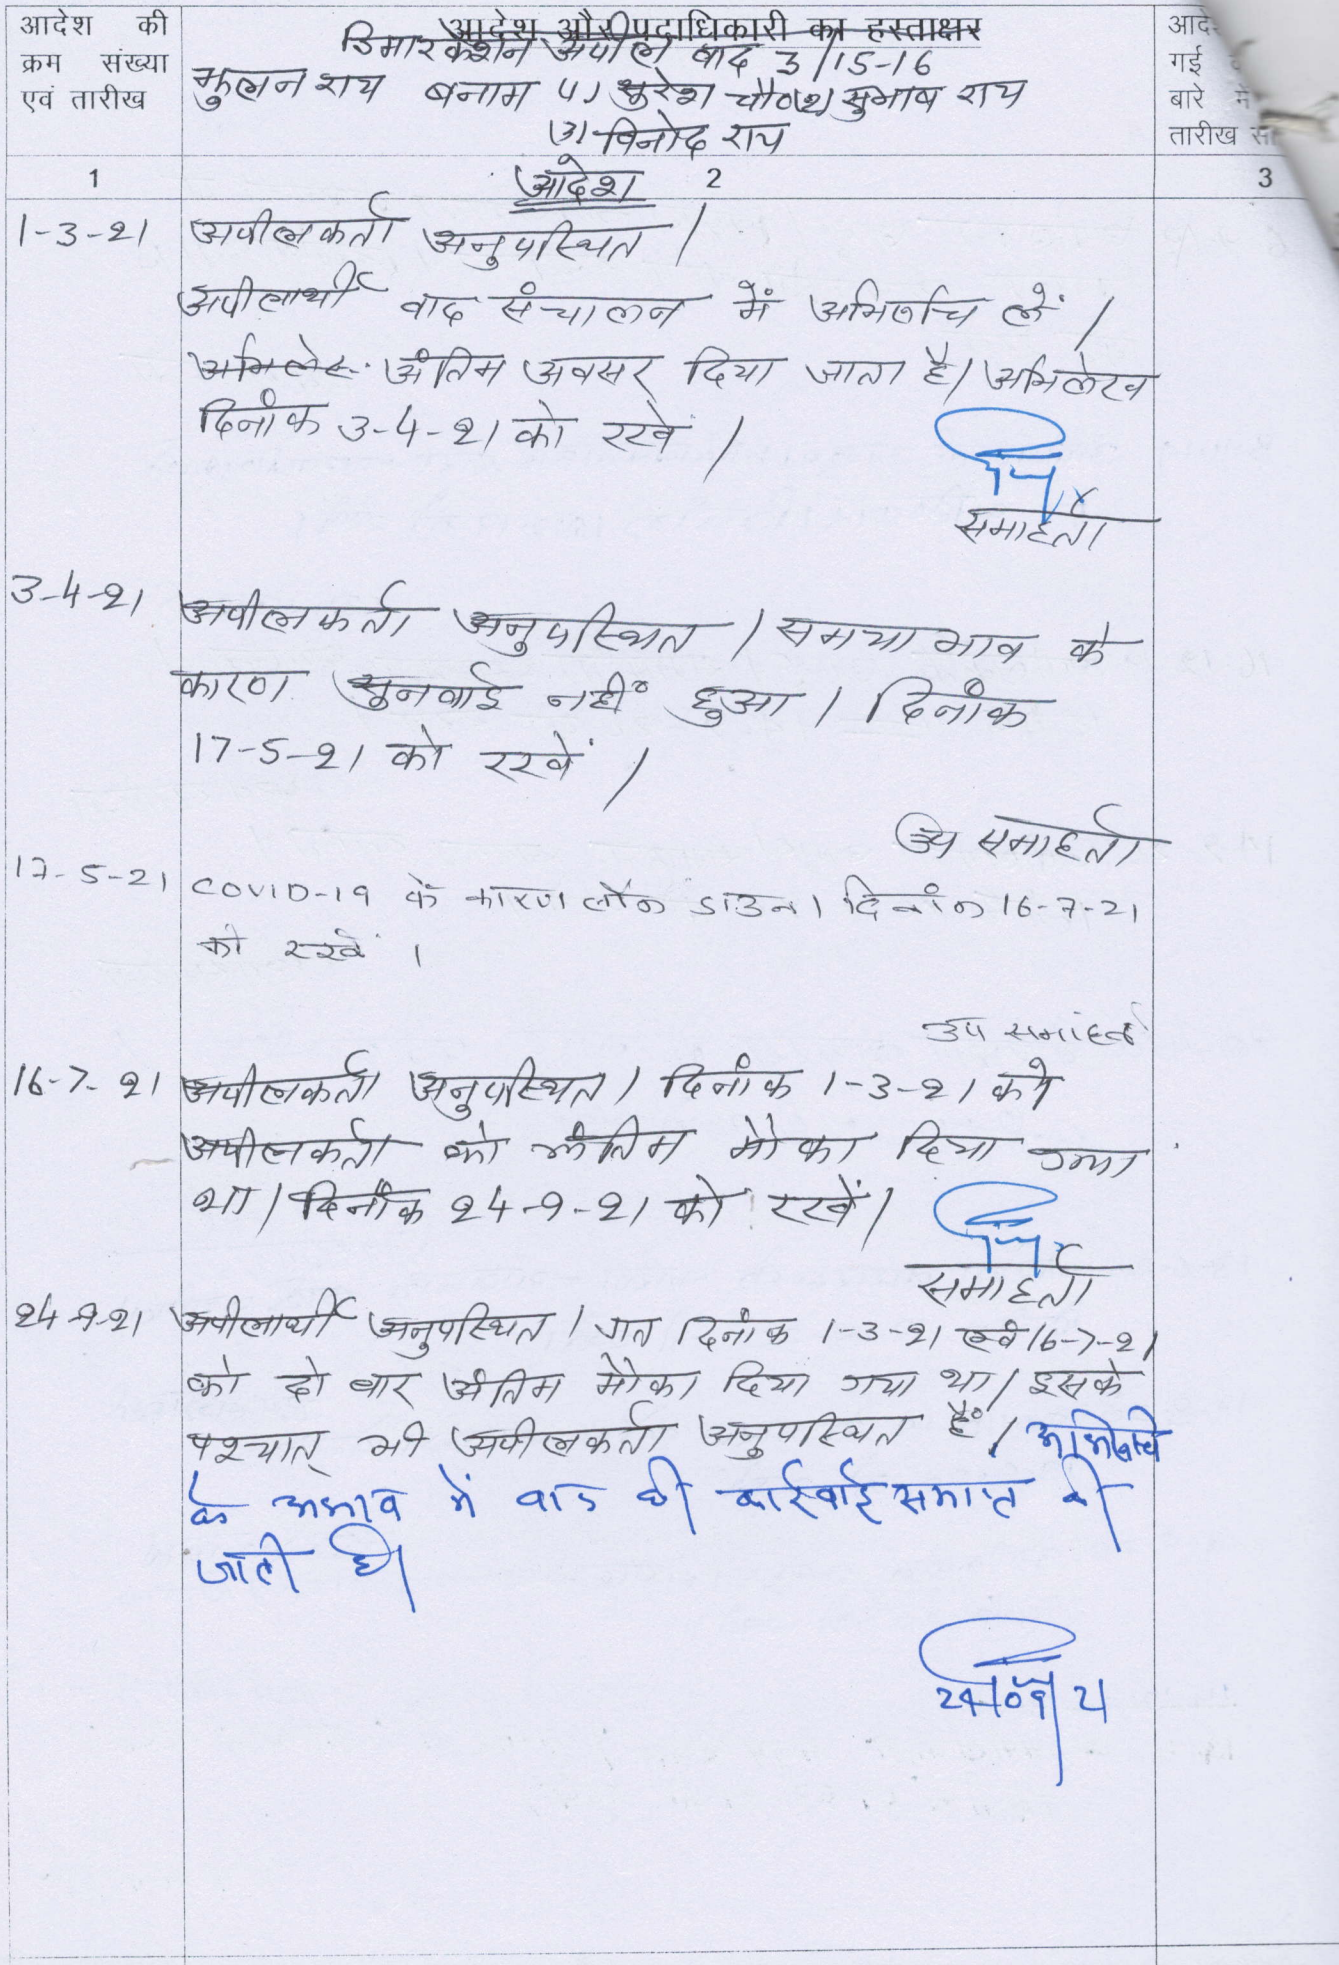 आदेश की
क्रम संख्या
एवं तारीख
आदेश और पदाधिकारी का हस्ताक्षर
डिमारकेशन अपील वाद 3/15-16
झुलन राय बनाम (1) सुरेश चौ० (2) सुभाष राय
(3) विनोद राय
गई
बारे में
तारीख
1
आदेश
2
3
1-3-21 अपीलकर्ता अनुपस्थित ।
अपीलार्थी वाद संचालन में अभिरूचि लें ।
अभिलेख अंतिम अवसर दिया जाता है। अभिलेख
दिनांक 3-4-21 को रखें ।
समाहर्ता
3-4-21 अपीलकर्ता अनुपस्थित । समयाभाव के
कारण सुनवाई नहीं हुआ । दिनांक
17-5-21 को रखें ।
उप समाहर्ता
17-5-21 COVID-19 के कारण लॉक डाउन । दिनांक 16-7-21
को रखें ।
उप समाहर्ता
16-7-21 अपीलकर्ता अनुपस्थित । दिनांक 1-3-21 को
अपीलकर्ता को अंतिम मौका दिया गया
था । दिनांक 24-9-21 को रखें।
समाहर्ता
24-9-21 अपीलार्थी अनुपस्थित । गत दिनांक 1-3-21 एवं 16-7-21
को दो बार अंतिम मौका दिया गया था । इसके
पश्चात् भी अपीलकर्ता अनुपस्थित हैं । अभिरूचि
के अभाव में वाद की कार्रवाई समाप्त की
जाती है।
24/09/21